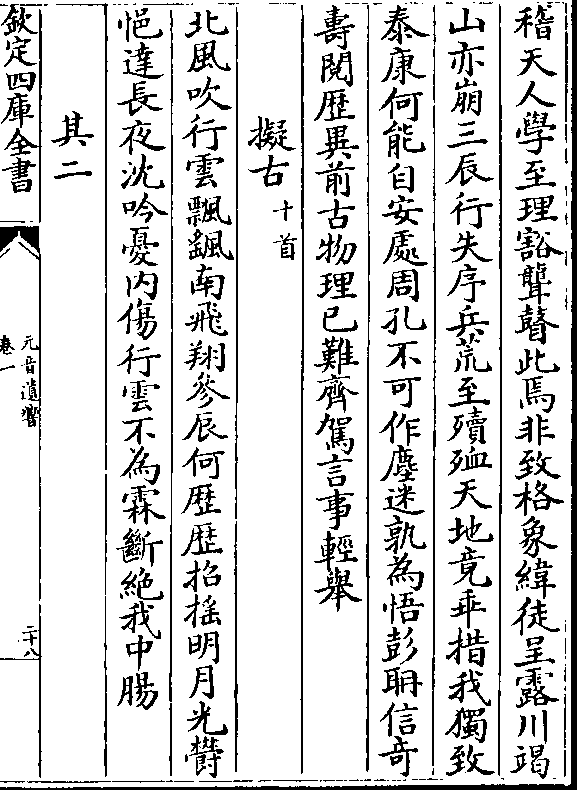 稽天人學至理豁聾瞽此焉非致格象緯徒呈露川竭
山亦崩三辰行失序兵荒至殰殈天地竟乖措我獨致
泰康何能自安處周孔不可作塵迷孰為悟彭聃信奇
壽閱歴異前古物理已難齊駕言事輕舉
擬古十首
北風吹行雲飄颻南飛翔參辰何歴歴招摇明月光鬱
悒達長夜沈吟憂内傷行雲不為霖斷絶我中腸
其二
欽定四庫全書
元音遺響
卷一
二十八